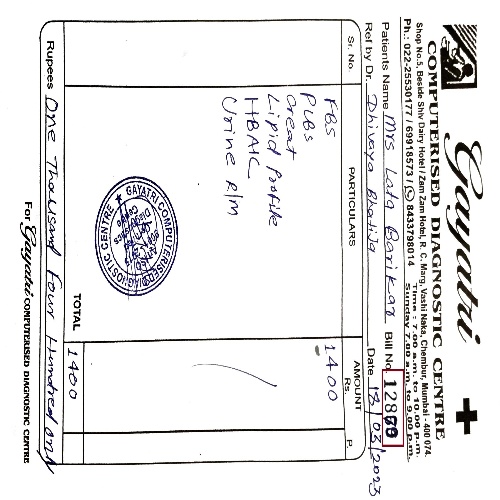 Gayatri
COMPUTERISED DIAGNOSTIC CENTRE
Shop No.5, Beside Shiv Dairy Hotel / Zam Zam Hotel, R. C. Marg, Vashi Naka, Chembur, Mumbai - 400 074.
Ph.: 022-25530177 / 69918573 / 8433798014
Time : 7.00 a.m. to 10.00 p.m.
Sunday 7.00 a.m. to 9.00 p.m.
Patients Name Mrs Lata Barikar Bill No.
Ref by Dr. Dhivaya Bhatija Date 18/03/2023
Sr. No. PARTICULARS AMOUNT
Rs. P.
FBS 1400
PLBS
Creat
Lipid Profile
HBAIC
Urine R/M
GAYATRI COMPUTERISED DIAGNOSTIC CENTRE
TOTAL 1400
Rupees One Thousand Four Hundred only
For Gayatri COMPUTERISED DIAGNOSTIC CENTRE